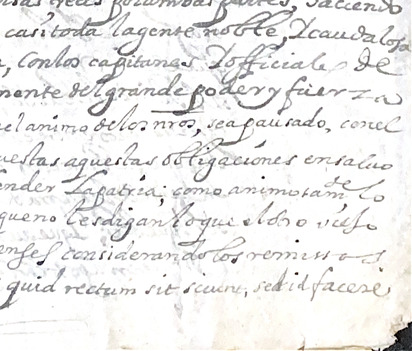 por ambas partes, haciendo
casi toda la gente noble, I caudalosa
, con los capitanes I officiales de
mente del grande poder y fuerza
el animo de los nr̃os, sea pausado, con el
uestas aquestas obligaciones en saluo
ender La patria; como animosam.te lo
que no les digan lo que el otro
enses considerandolos remissos
quid rectum sit sciunt, sed id facere